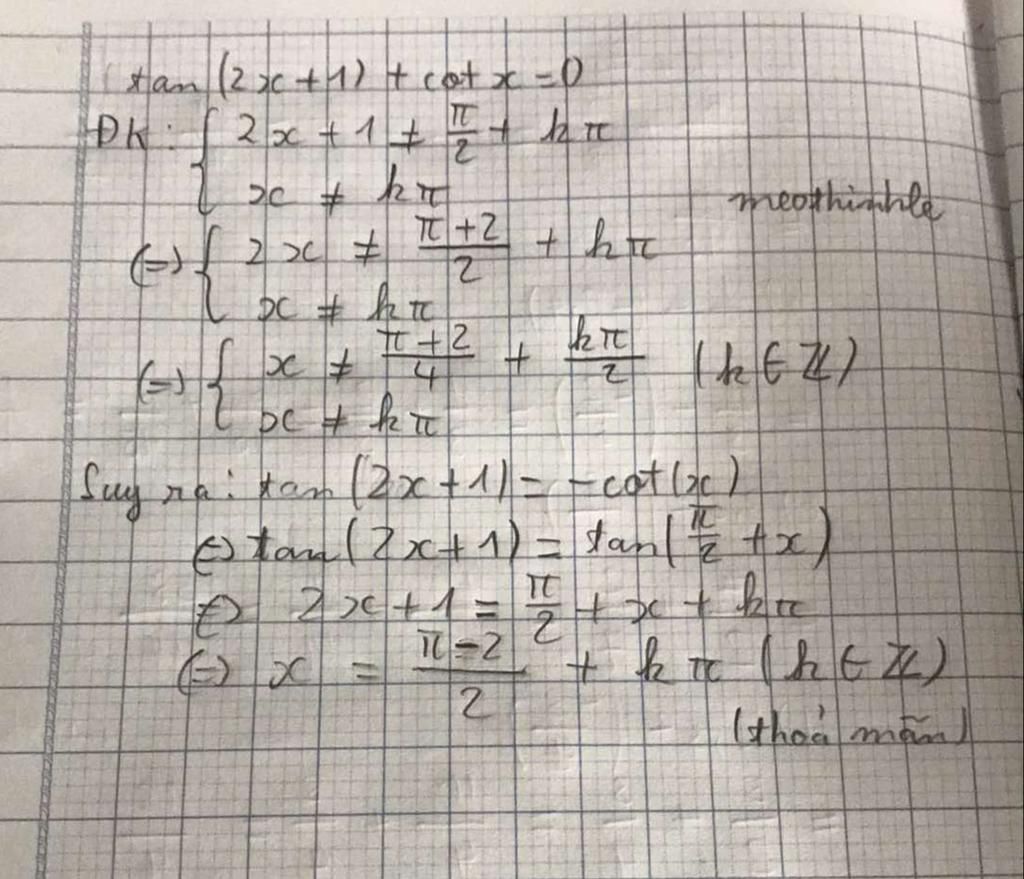 tan(2x+1) + cot x = 0
ĐK: { 2x + 1 ≠ π/2 + kπ
x ≠ kπ
meothinhle
(=) { 2x ≠ (π+2)/2 + kπ
x ≠ kπ
(=) { x ≠ (π+2)/4 + kπ/2 (k ∈ Z)
x ≠ kπ
Suy ra: tan(2x+1) = -cot(x)
(=) tan(2x+1) = tan(π/2 + x)
(=) 2x+1 = π/2 + x + kπ
(=) x = (π-2)/2 + kπ (k ∈ Z)
(thoả mãn)